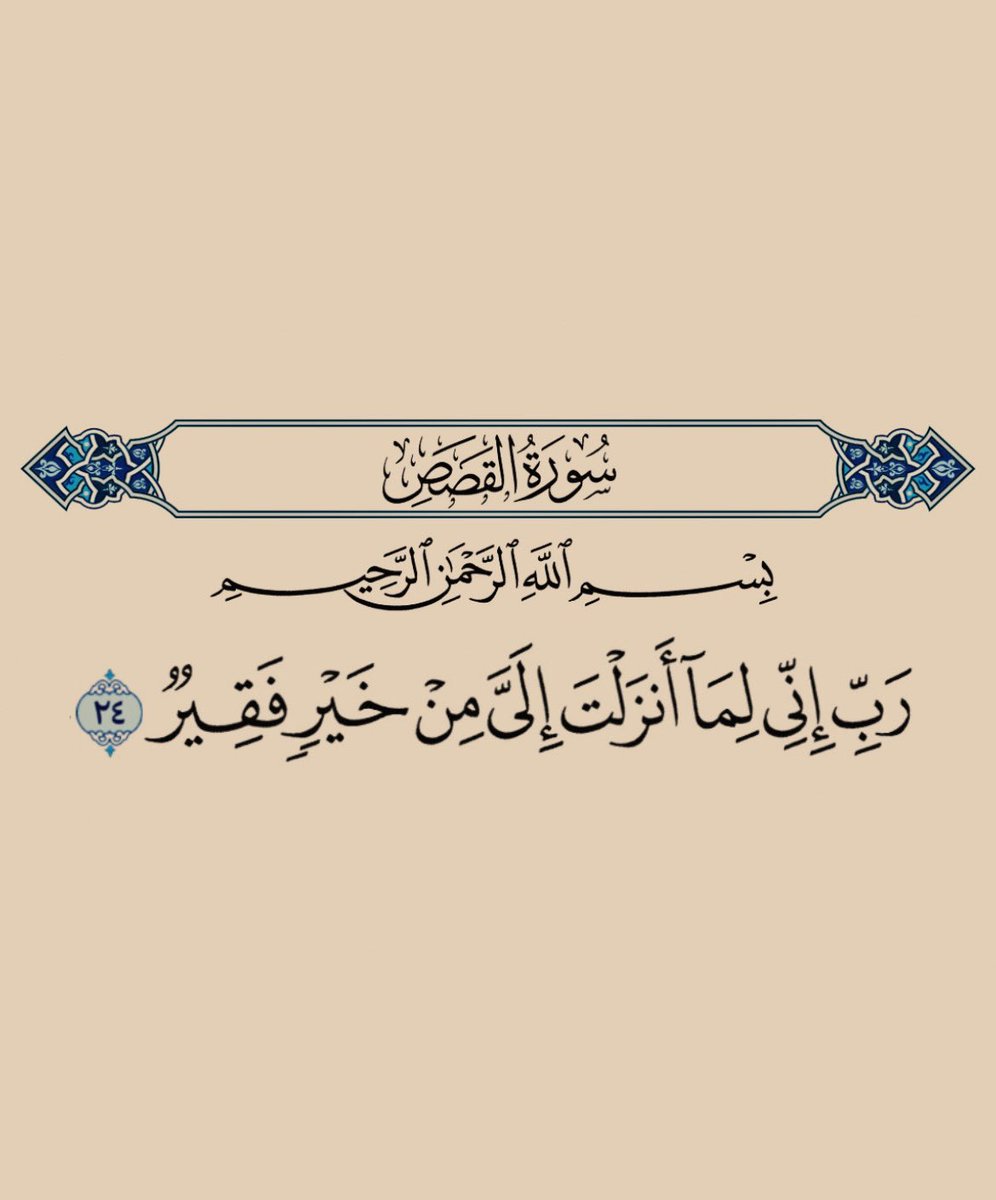 سُورَةُ القَصَصِ
بِسْمِ ٱللَّهِ ٱلرَّحْمَٰنِ ٱلرَّحِيمِ
رَبِّ إِنِّي لِمَآ أَنزَلْتَ إِلَيَّ مِنْ خَيْرٍ فَقِيرٌ ٢٤